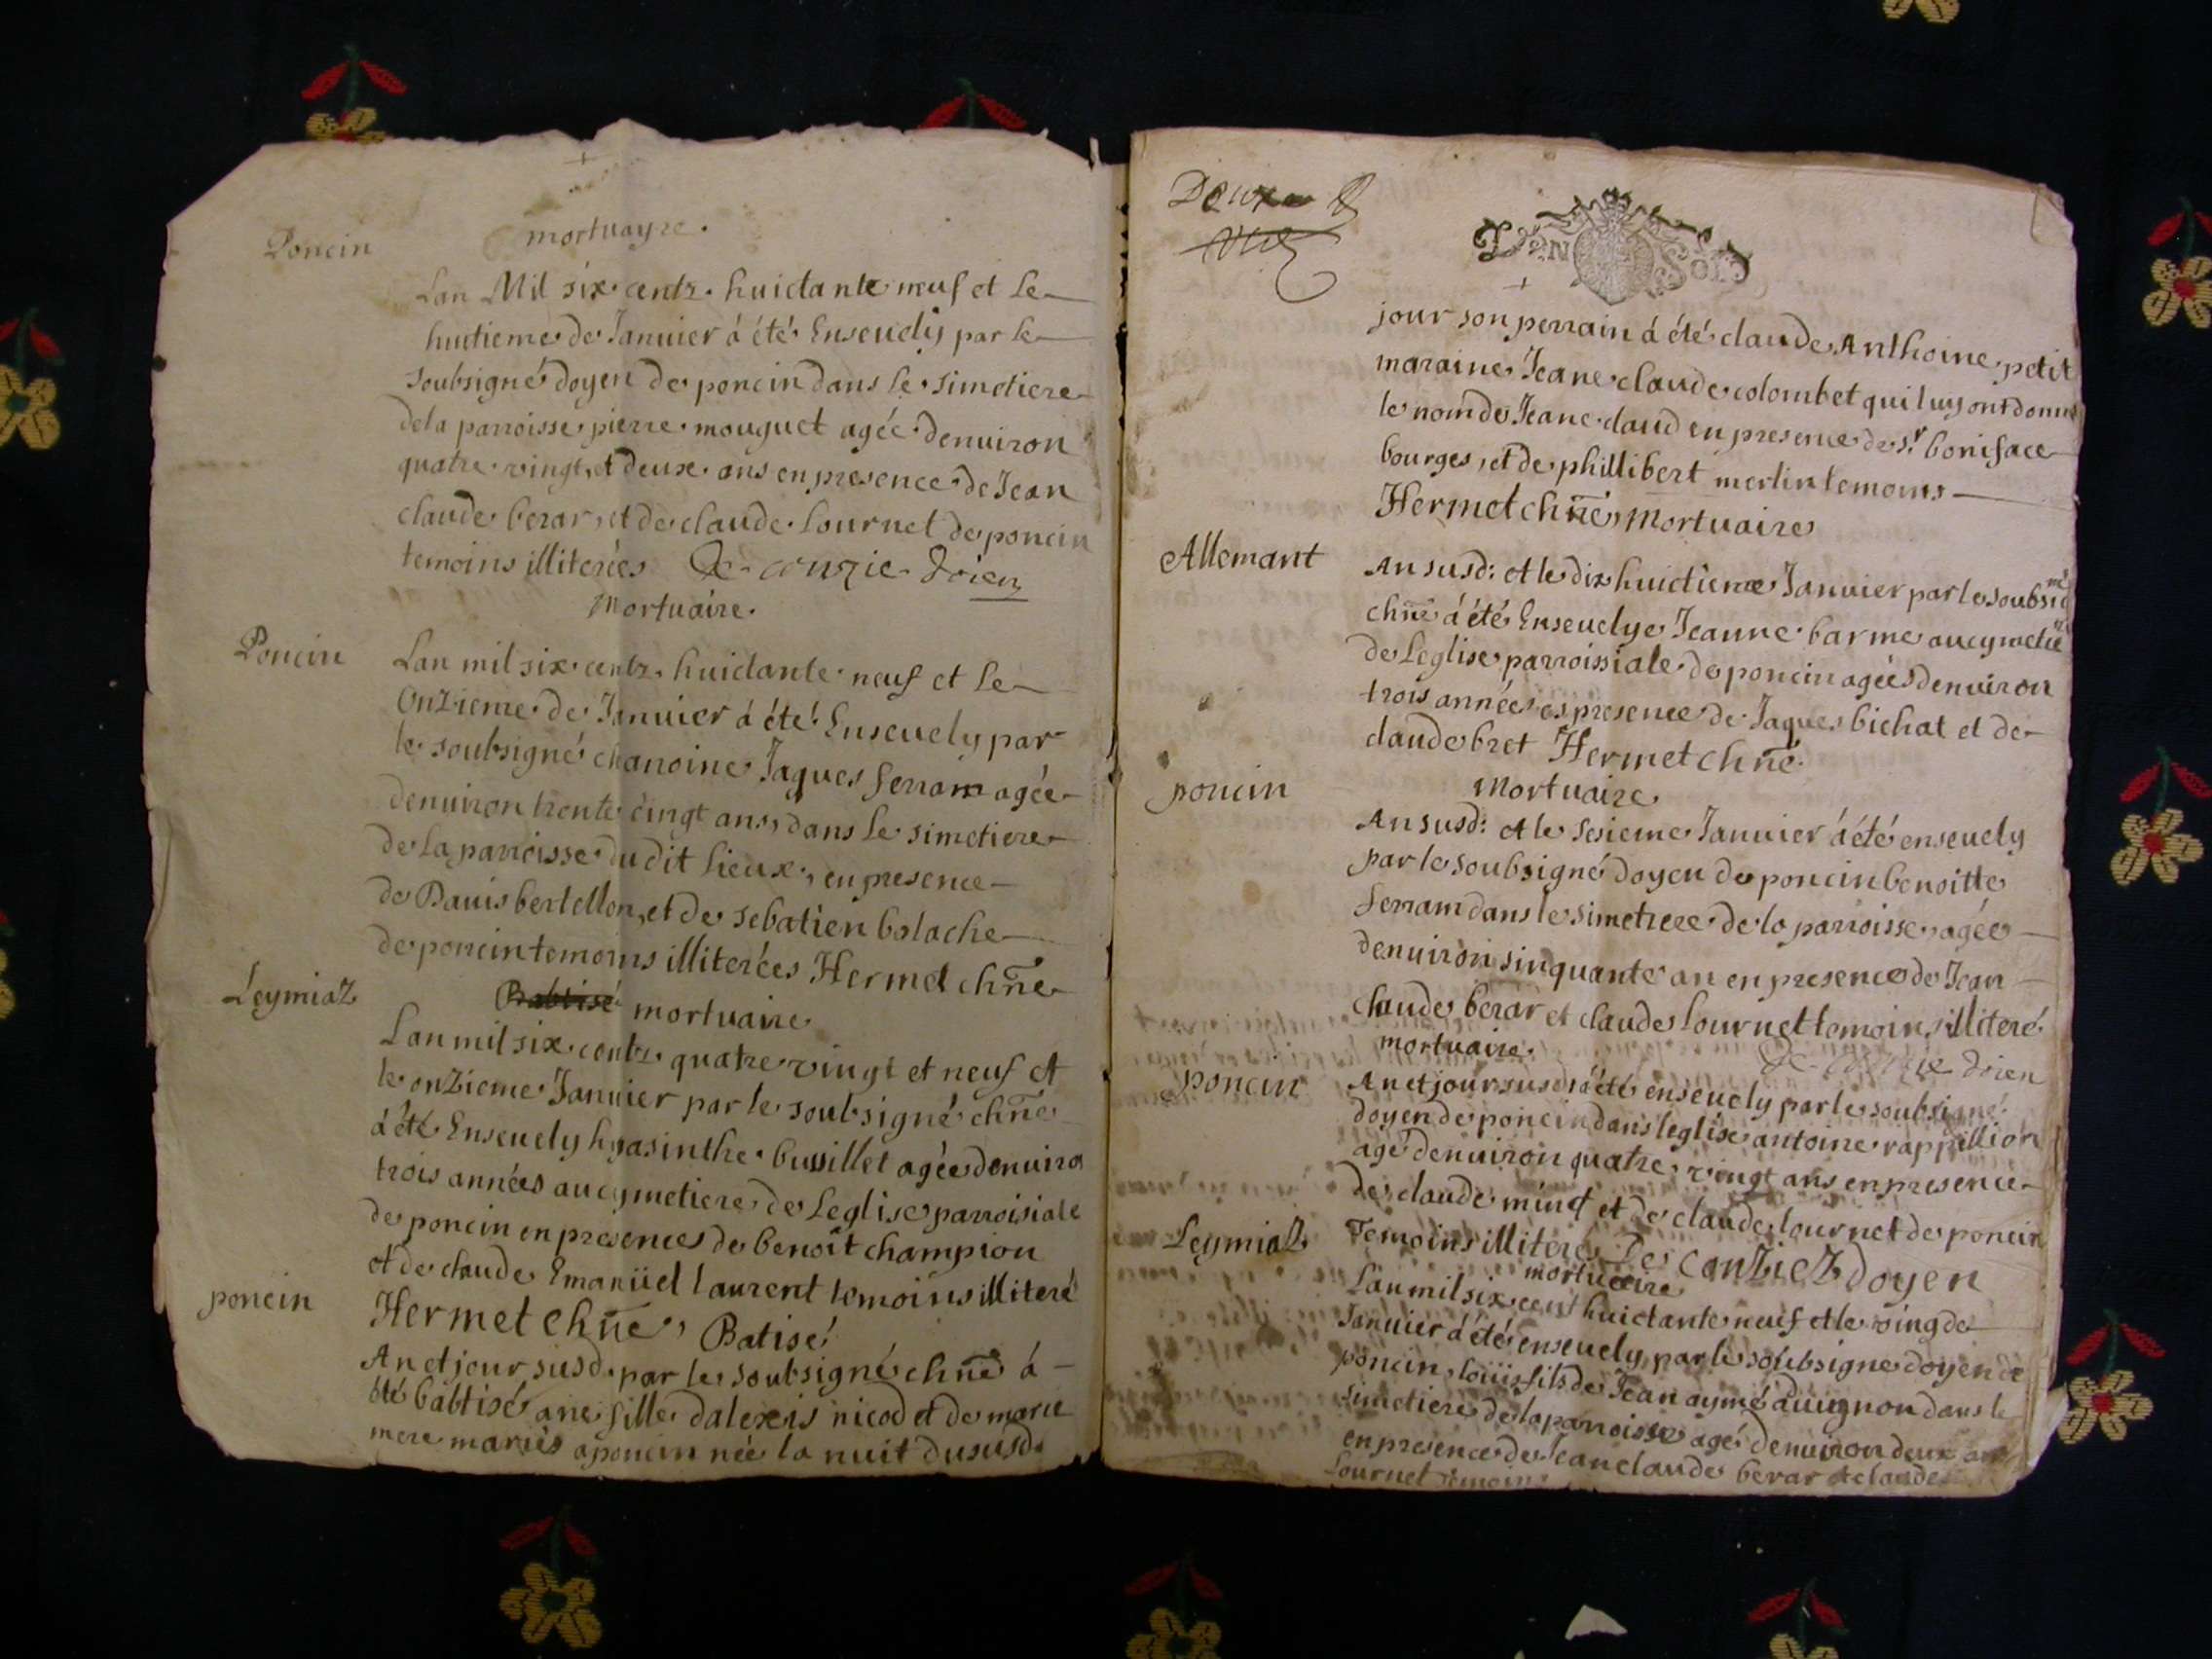 Poncin
mortuayre.
Lan Mil six centz huictante neuf et le
huitieme de Januier á été Enseuelis par le
soubsigné doyen de poncin dans le simetiere
de la parroisse pierre mouguet agée denuiron
quatre vingt, et deux ans en presence de Jean
claude berar, et de claude Lournet de poncin
temoins illiterées De
Mortuáire.
Poncin
Lan mil six centz huictante neuf et le
Onzieme de Januier á été Enseuely par
le soubsigné chanoine Jaques ferram agée
denuiron trente cinqt ans, dans le simetiere
de La parroisse du dit lieux, en presence
de Dauis bertellon, et de sebatien balache
de poncin temoins illiterées Hermet chñe
Leymiaz
mortuaire
Lan mil six centz quatre vingt et neuf et
le onzieme Januier par le soubsigné chñe
á été Enseuely hyasinthe bussillet agée denuiron
trois années au cymetiere de Leglise parroisiale
de poncin en presences de benoît champion
et de claude Emanüel laurent temoins illiteré
poncin
Hermet chñe, Batisé
An et jour susd. par le soubsigné chñe á
été babtisé ane fille dalexis nicod et de marie
mere mariés a poncin née la nuit du susd.
Deux
Den Sol
jour son perrain á été claude Anthoine petit
maraine Jeane claude colombet qui luy ont donné
le nom de Jeane claud en presence de sr. boniface
bourges, et de phillibert merlin temoins
Hermet chñe, Mortuaire
Allemant
An susd: et le dix huictieme Januier par le soubsigé
chñe á été Enseuelye Jeanne barme au cymetie
de Leglise parroissiale de poncin agée denuiron
trois années es presence de Jaques bichat et de
claude bret Hermet chñe
poncin
Mortuaire
An susd: et le sesieme Januier á été enseuely
par le soubsigné doyen de poncin benoitte
ferram dans le simetiere de la parroisse, agée
denuiron sinquante an en presence de Jean
claude berar et claude Lournet temoins illiteré
mortuaire.
De
poncin
An et jour susd á été enseuely par le soubsigné
doyen de poncin dans leglise antoine rappillion
agé denuiron quatre vingt ans en presence
de claude minet et de claude lournet de poncin
Leymiaz
Temoins illiteré De Conziez Doyen
mortuaire
Lan mil six cent huictante neuf et le ving de
Januier á été enseuely par le soubsigne doyen de
poncin, loüis fils de Jean aymé duuignon dans le
simetiere de la parroisse agé denuiron deux ans
en presence de Jean claude berar et claude
Lournet temoins